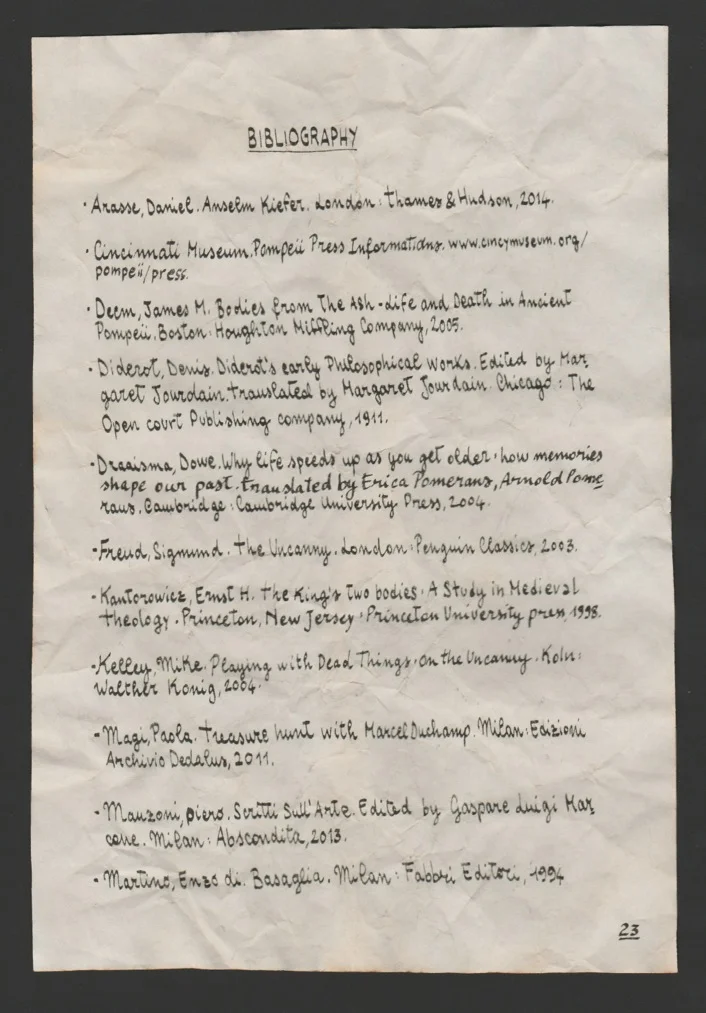 BIBLIOGRAPHY
· Arasse, Daniel. Anselm Kiefer. London: Thames & Hudson, 2014.
· Cincinnati Museum, Pompeii Press Informations. www.cincymuseum.org/
pompeii/press.
· Deem, James M. Bodies from The Ash - Life and Death in Ancient
Pompeii. Boston: Houghton Miffling Company, 2005.
· Diderot, Denis. Diderot's early Philosophical Works. Edited by Mar
garet Jourdain. translated by Margaret Jourdain. Chicago: The
Open court Publishing company, 1911.
· Draaisma, Dowe. Why life speeds up as you get older: how memories
shape our past. translated by Erica Pomerans, Arnold Pome
rans, Cambridge: Cambridge University Press, 2004.
- Freud, Sigmund. The Uncanny. London: Penguin Classics, 2003.
- Kantorowicz, Ernst H. The King's two bodies: A Study in Medieval
theology. Princeton, New Jersey: Princeton University press, 1998.
- Kelley, Mike. Playing with Dead Things: on the Uncanny. Koln:
Walther Konig, 2004.
- Magi, Paola. treasure hunt with Marcel Duchamp. Milan: Edizioni
Archivio Dedalus, 2011.
- Manzoni, piero. Scritti Sull'Arte. Edited by Gaspare Luigi Mar
cone. Milan: Abscondita, 2013.
- Martino, Enzo di. Basaglia. Milan: Fabbri Editori, 1994
23